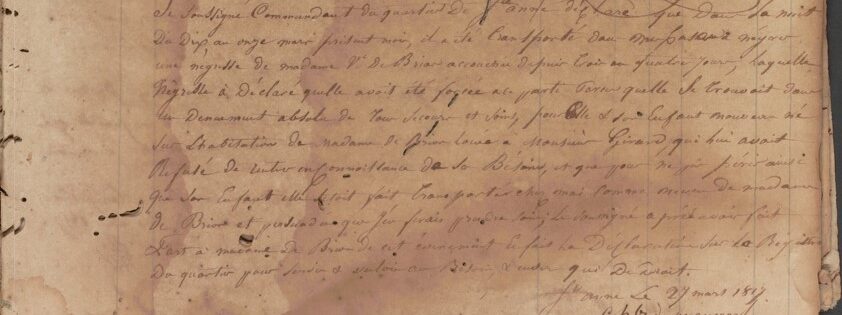 Je Soussigné Commandant du quartier de Ste anne déclare que dans la nuit
Du dix au onze mars présent mois, il a été transporté dans ma Case à nègres
une négresse de madame Ve De Brion accouchée depuis trois ou quatre jours, laquelle
Négresse à Déclaré quelle avoit été forcée de partir parcequelle Se trouvoit dans
un Denuement absolu de Tous Secours et Soins, pour Elle & son Enfant nouveau né
Sur L'habitation de madame de Brion louée à Monsieur Girard qui lui avoit
Refusé de entrer en Connoissance de Ses Besoins, et que pour ne pas périr ainsi
que Son Enfant elle s'étoit fait Transporter chez moi Comme neveu de madame
de Brion et persuadée que J'en ferais prendre soin; Le Soussigné après avoir fait
Part à madame de Brion de cet evenement Le fait La Déclaration Sur Le Registre
Du quartier pour Servir & valoir au Besoin, à ceux que De droit.
Ste anne Le 27 mars 1817